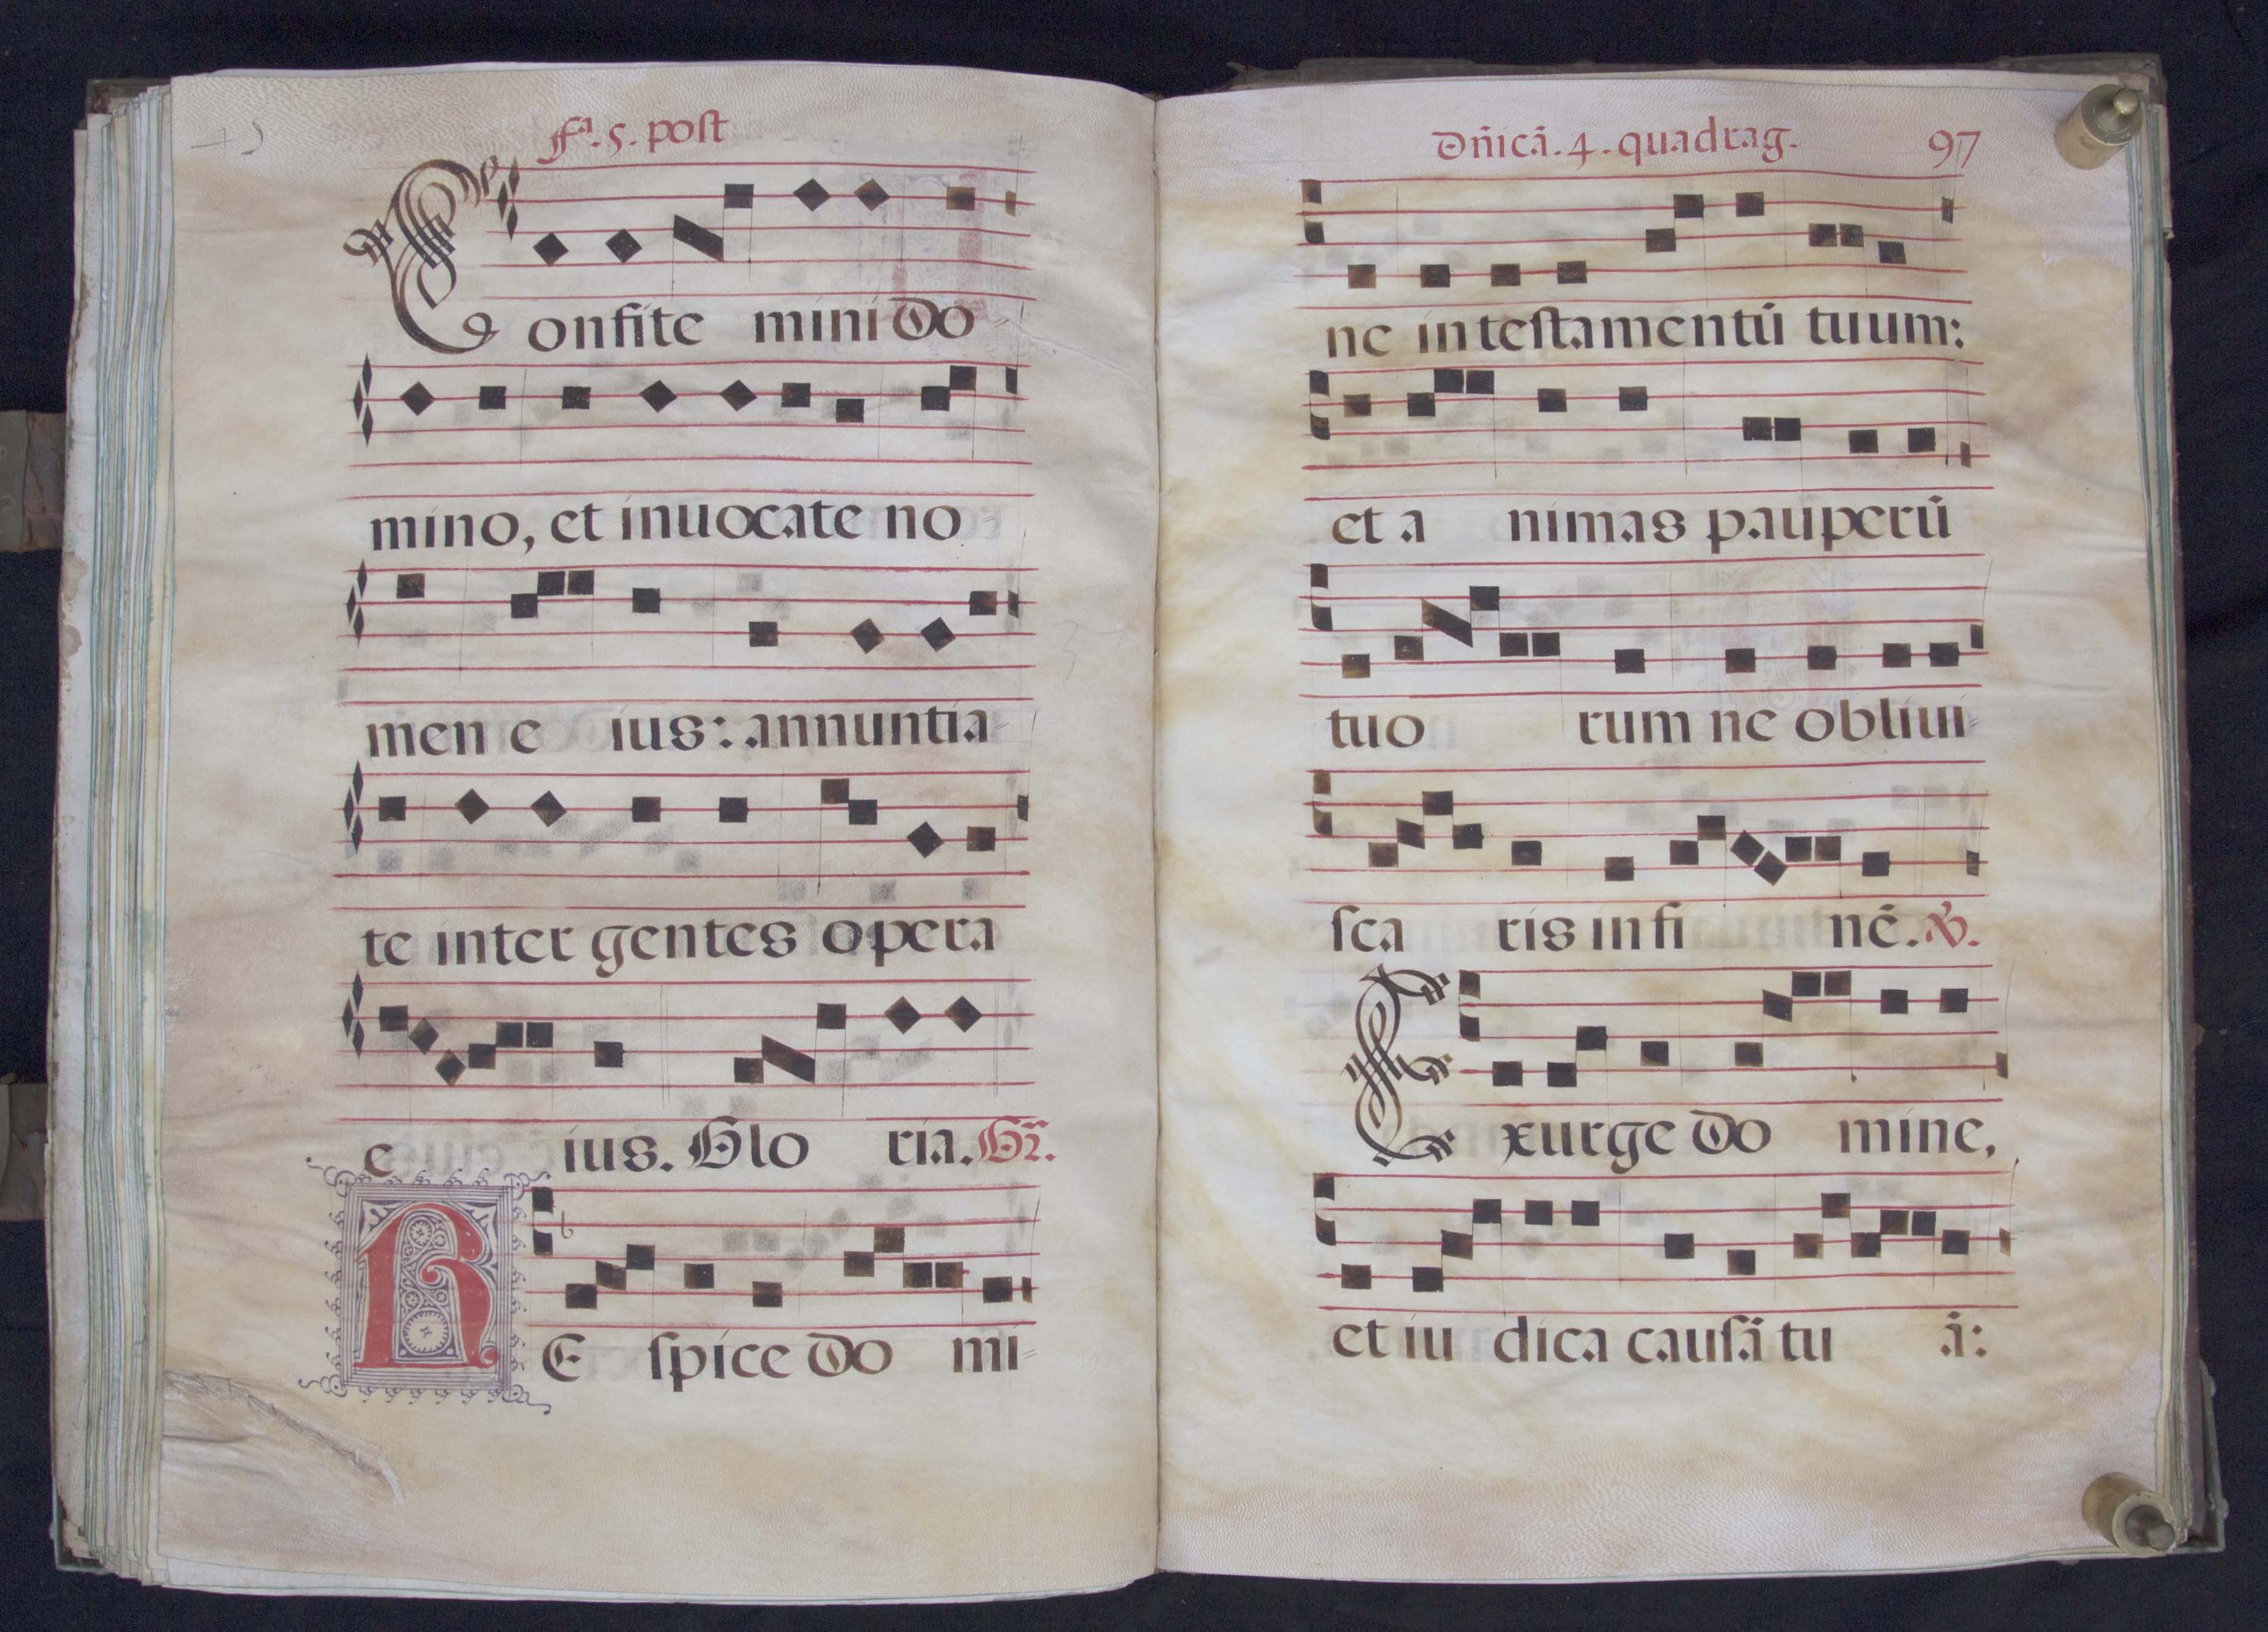 fª. 5. post
Confite mini Do-
mino, et inuocate no
men e ius: annuntia-
te inter gentes opera
e ius. Glo ria. Gr.
RE spice Do mi-
Dn̄icā. 4. quadrag. 97
ne in testamentū tuum:
et a nimas pauperū
tuo rum ne obliui-
sca ris in fi nē. ℣.
Exurge Do mine,
et iu dica causā tu ā: